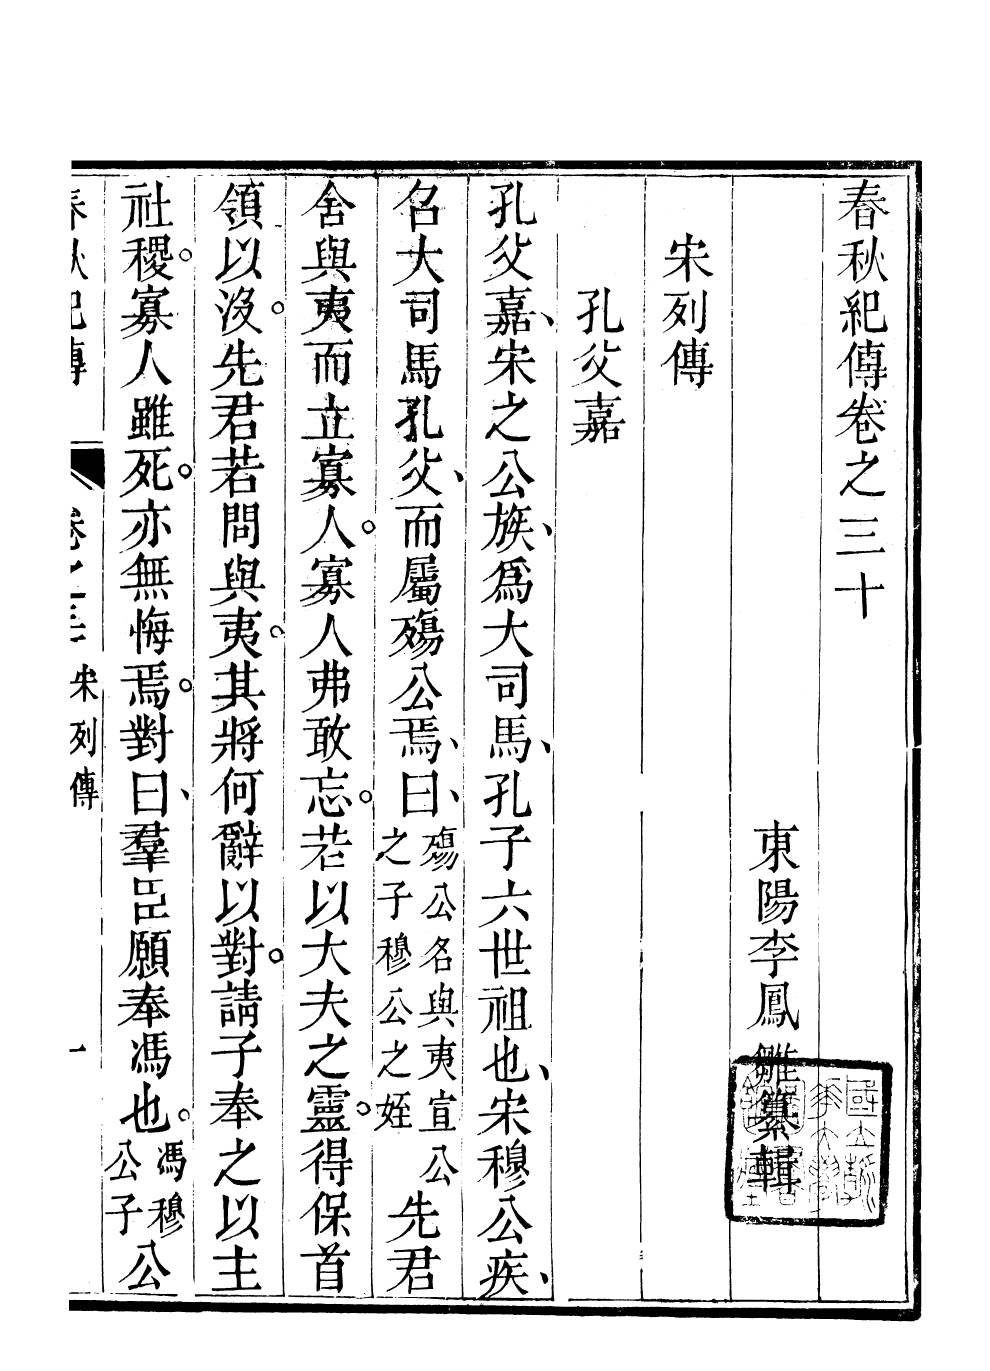 春秋紀傳卷之三十
東陽李鳳雛纂輯
宋列傳
孔父嘉
孔父嘉、宋之公族、爲大司馬、孔子六世祖也、宋穆公疾、
名大司馬孔父、而屬殤公焉、曰、殤公名與夷宣公之子穆公之姪先君
舍與夷而立寡人。寡人弗敢忘。若以大夫之靈。得保首
領以沒。先君若問與夷。其將何辭以對。請子奉之以主
社稷。寡人雖死。亦無悔焉。對曰、羣臣願奉馮也。馮穆公子公
春秋紀傳 卷之三十 宋列傳 一